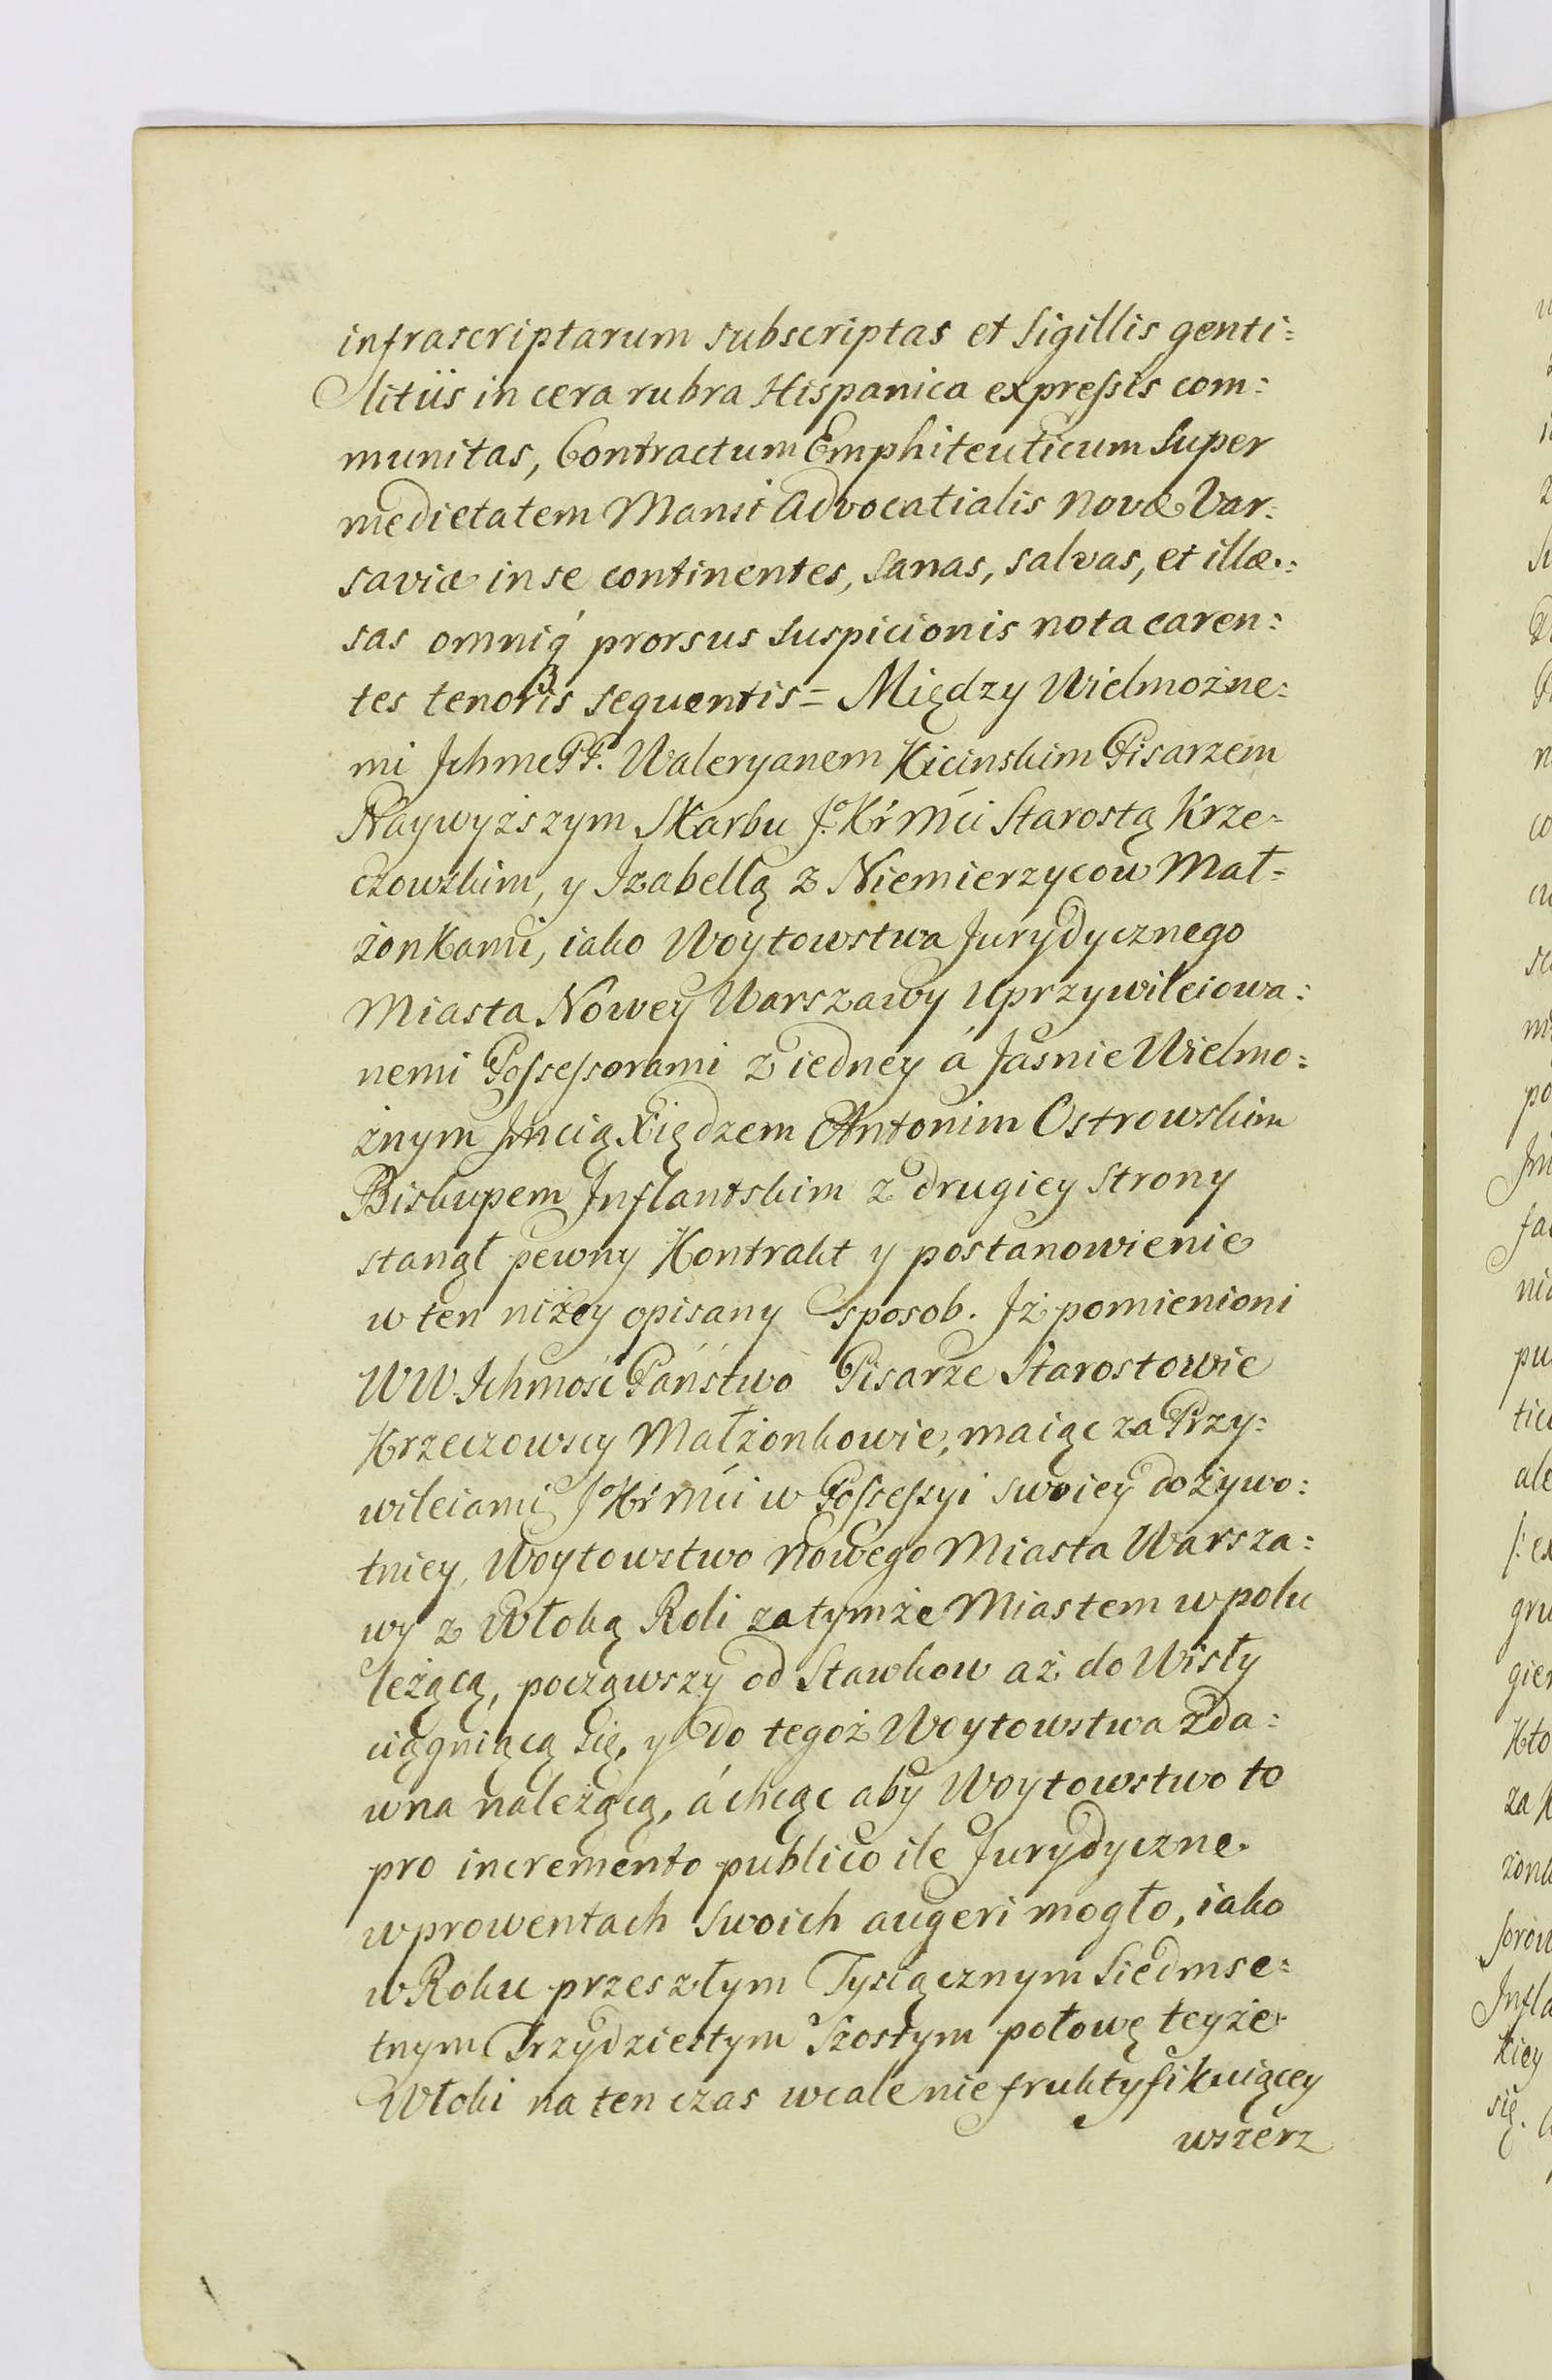 infrascriptarum subscriptas et Sigillis genti:
litiis in cera rubra Hispanica expressis com:
munitas, Contractum Emphiteuticum Super
medietatem Mansi Advocatialis Novæ Var:
saviæ in se continentes, Sanas, salvas, et illæ:
sas omniq́ prorsus Suspicionis nota caren:
tes tenoris sequentis = Między Wielmożne:
mi Jchmć PP. Waleryanem Kicinskim Pisarzem
Naywyższym Skarbu J.º Kŕ Mći Starostą Krze:
czowskim, y Jzabellą z Niemierzycow Mał:
żonkami, iako Woytowstwa Jurydycznego
Miasta Nowey Warszawy Uprzywileiowa:
nemi Possessorami z iedney á Jasnie Wielmo:
żnym Jmcią Xiędzem Antonim Ostrowskim
Biskupem Inflantskim z drugiey Strony
stanął pewny Kontrakt y postanowienie
w ten niżey opisany Sposob. Jż pomienioni
WW. Jchmość Państwo Pisarze Starostowie
Krzeczowscy Małżonkowie, maiąc za Przy:
wileiami J.º Kŕ Mći w Possessyi swoiey dożywo:
tniey, Woytowstwo Nowego Miasta Warsza:
wy z Włoką Roli za tymże Miastem w polu
leżącą, począwszy od Stawkow aż do Wisły
ciągniącą się, y do tegoż Woytowstwa zda:
wna należącą, á chcąc aby Woytowstwo to
pro incremento publico ile Jurydyczne
w prowentach Swoich augeri mogło, iako
w Roku przeszłym Tysiącznym Siedmse:
tnym Trzydziestym Szostym połowę teyże
Włoki na ten czas wcale nie fruktyfikuiącey
wszerz